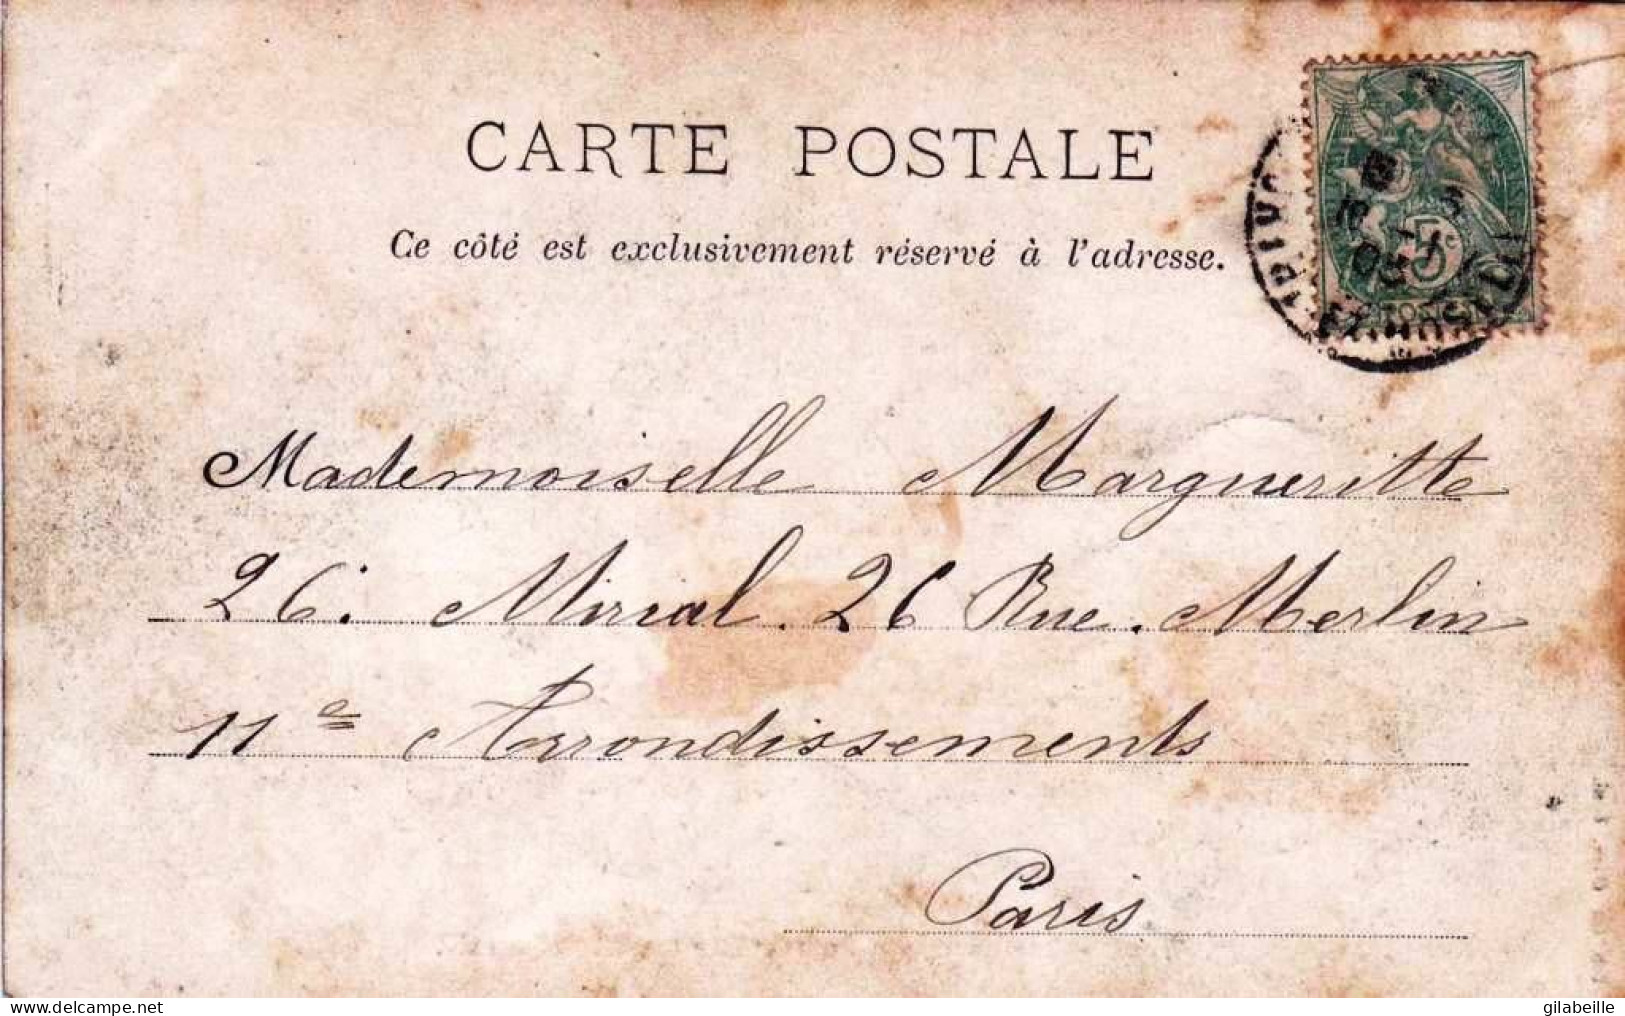 CARTE POSTALE
Ce côté est exclusivement réservé à l'adresse.
5c
03
Mademoiselle Margueritte
26. Mirial. 26 Rue. Merlin
11e Arrondissements
Paris
Delcampe.net
gilabeille